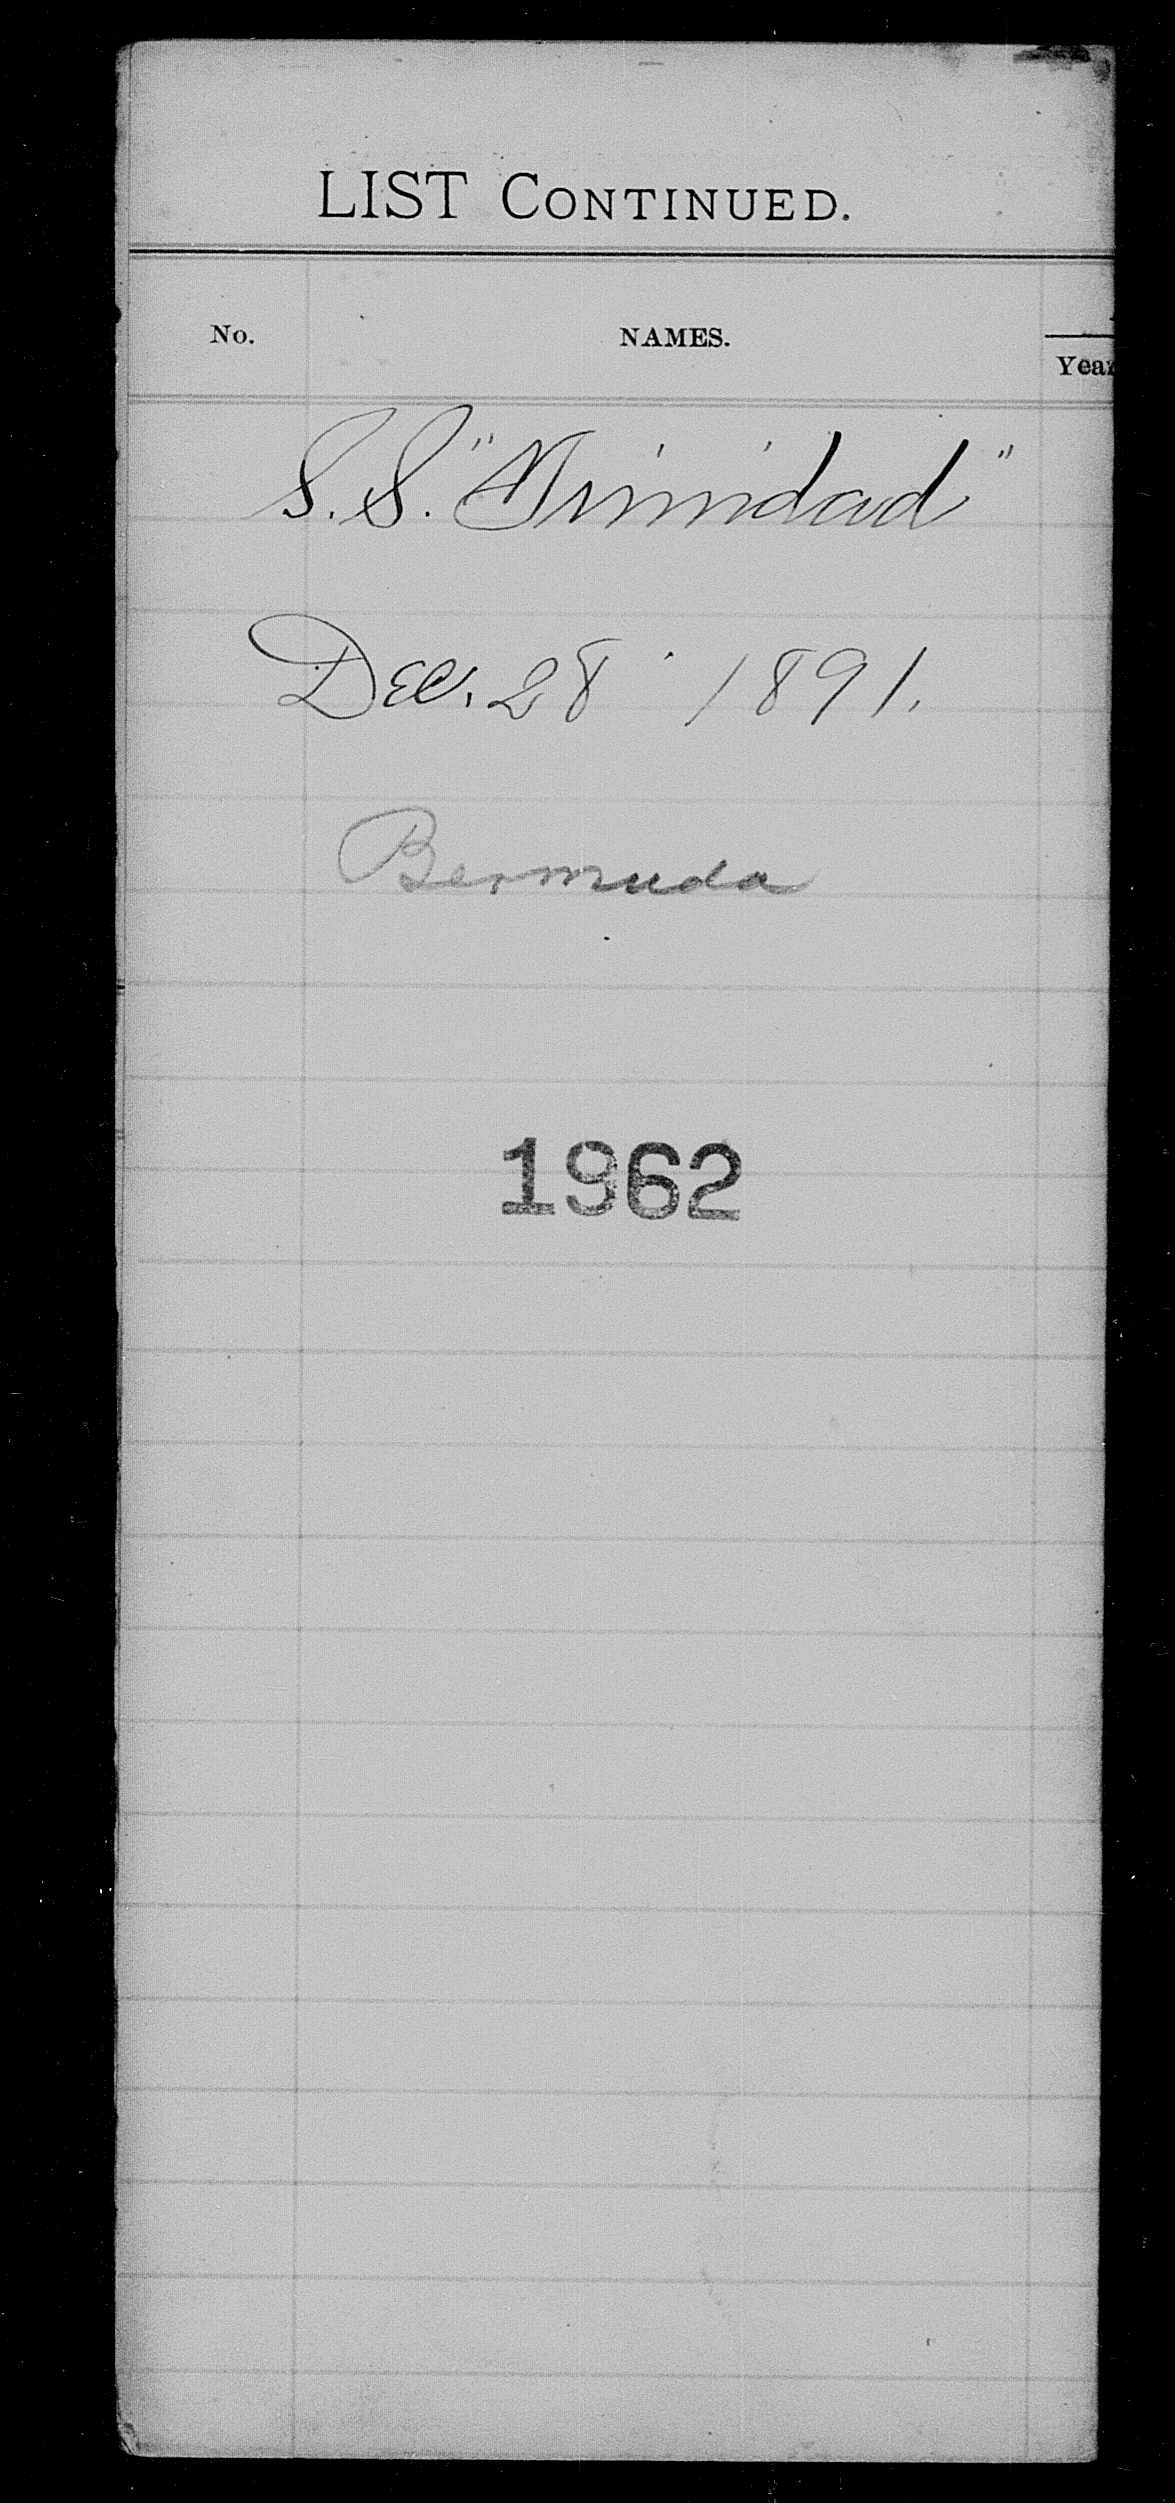 LIST CONTINUED.
No. NAMES.
S.S. "Trinidad"
Dec. 28 1891.
Bermuda
1962